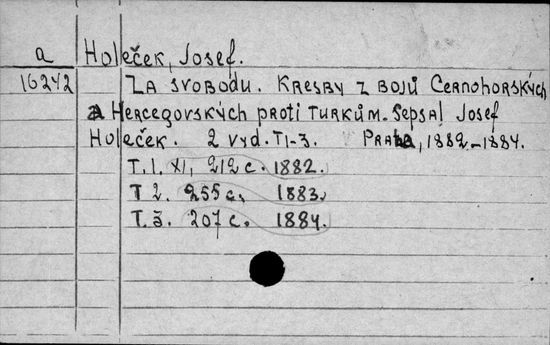 a Holeček, Josef.
16242 Za svobodu. Kresby z bojů Černohorských
a Hercegovských proti Turkům. Sepsal Josef
Holeček. 2 vyd. T 1-3. Praha, 1882.-1884.
T. 1. XI, 212 c. 1882.
T 2. 255 c. 1883.
T. 3. 207 c. 1884.